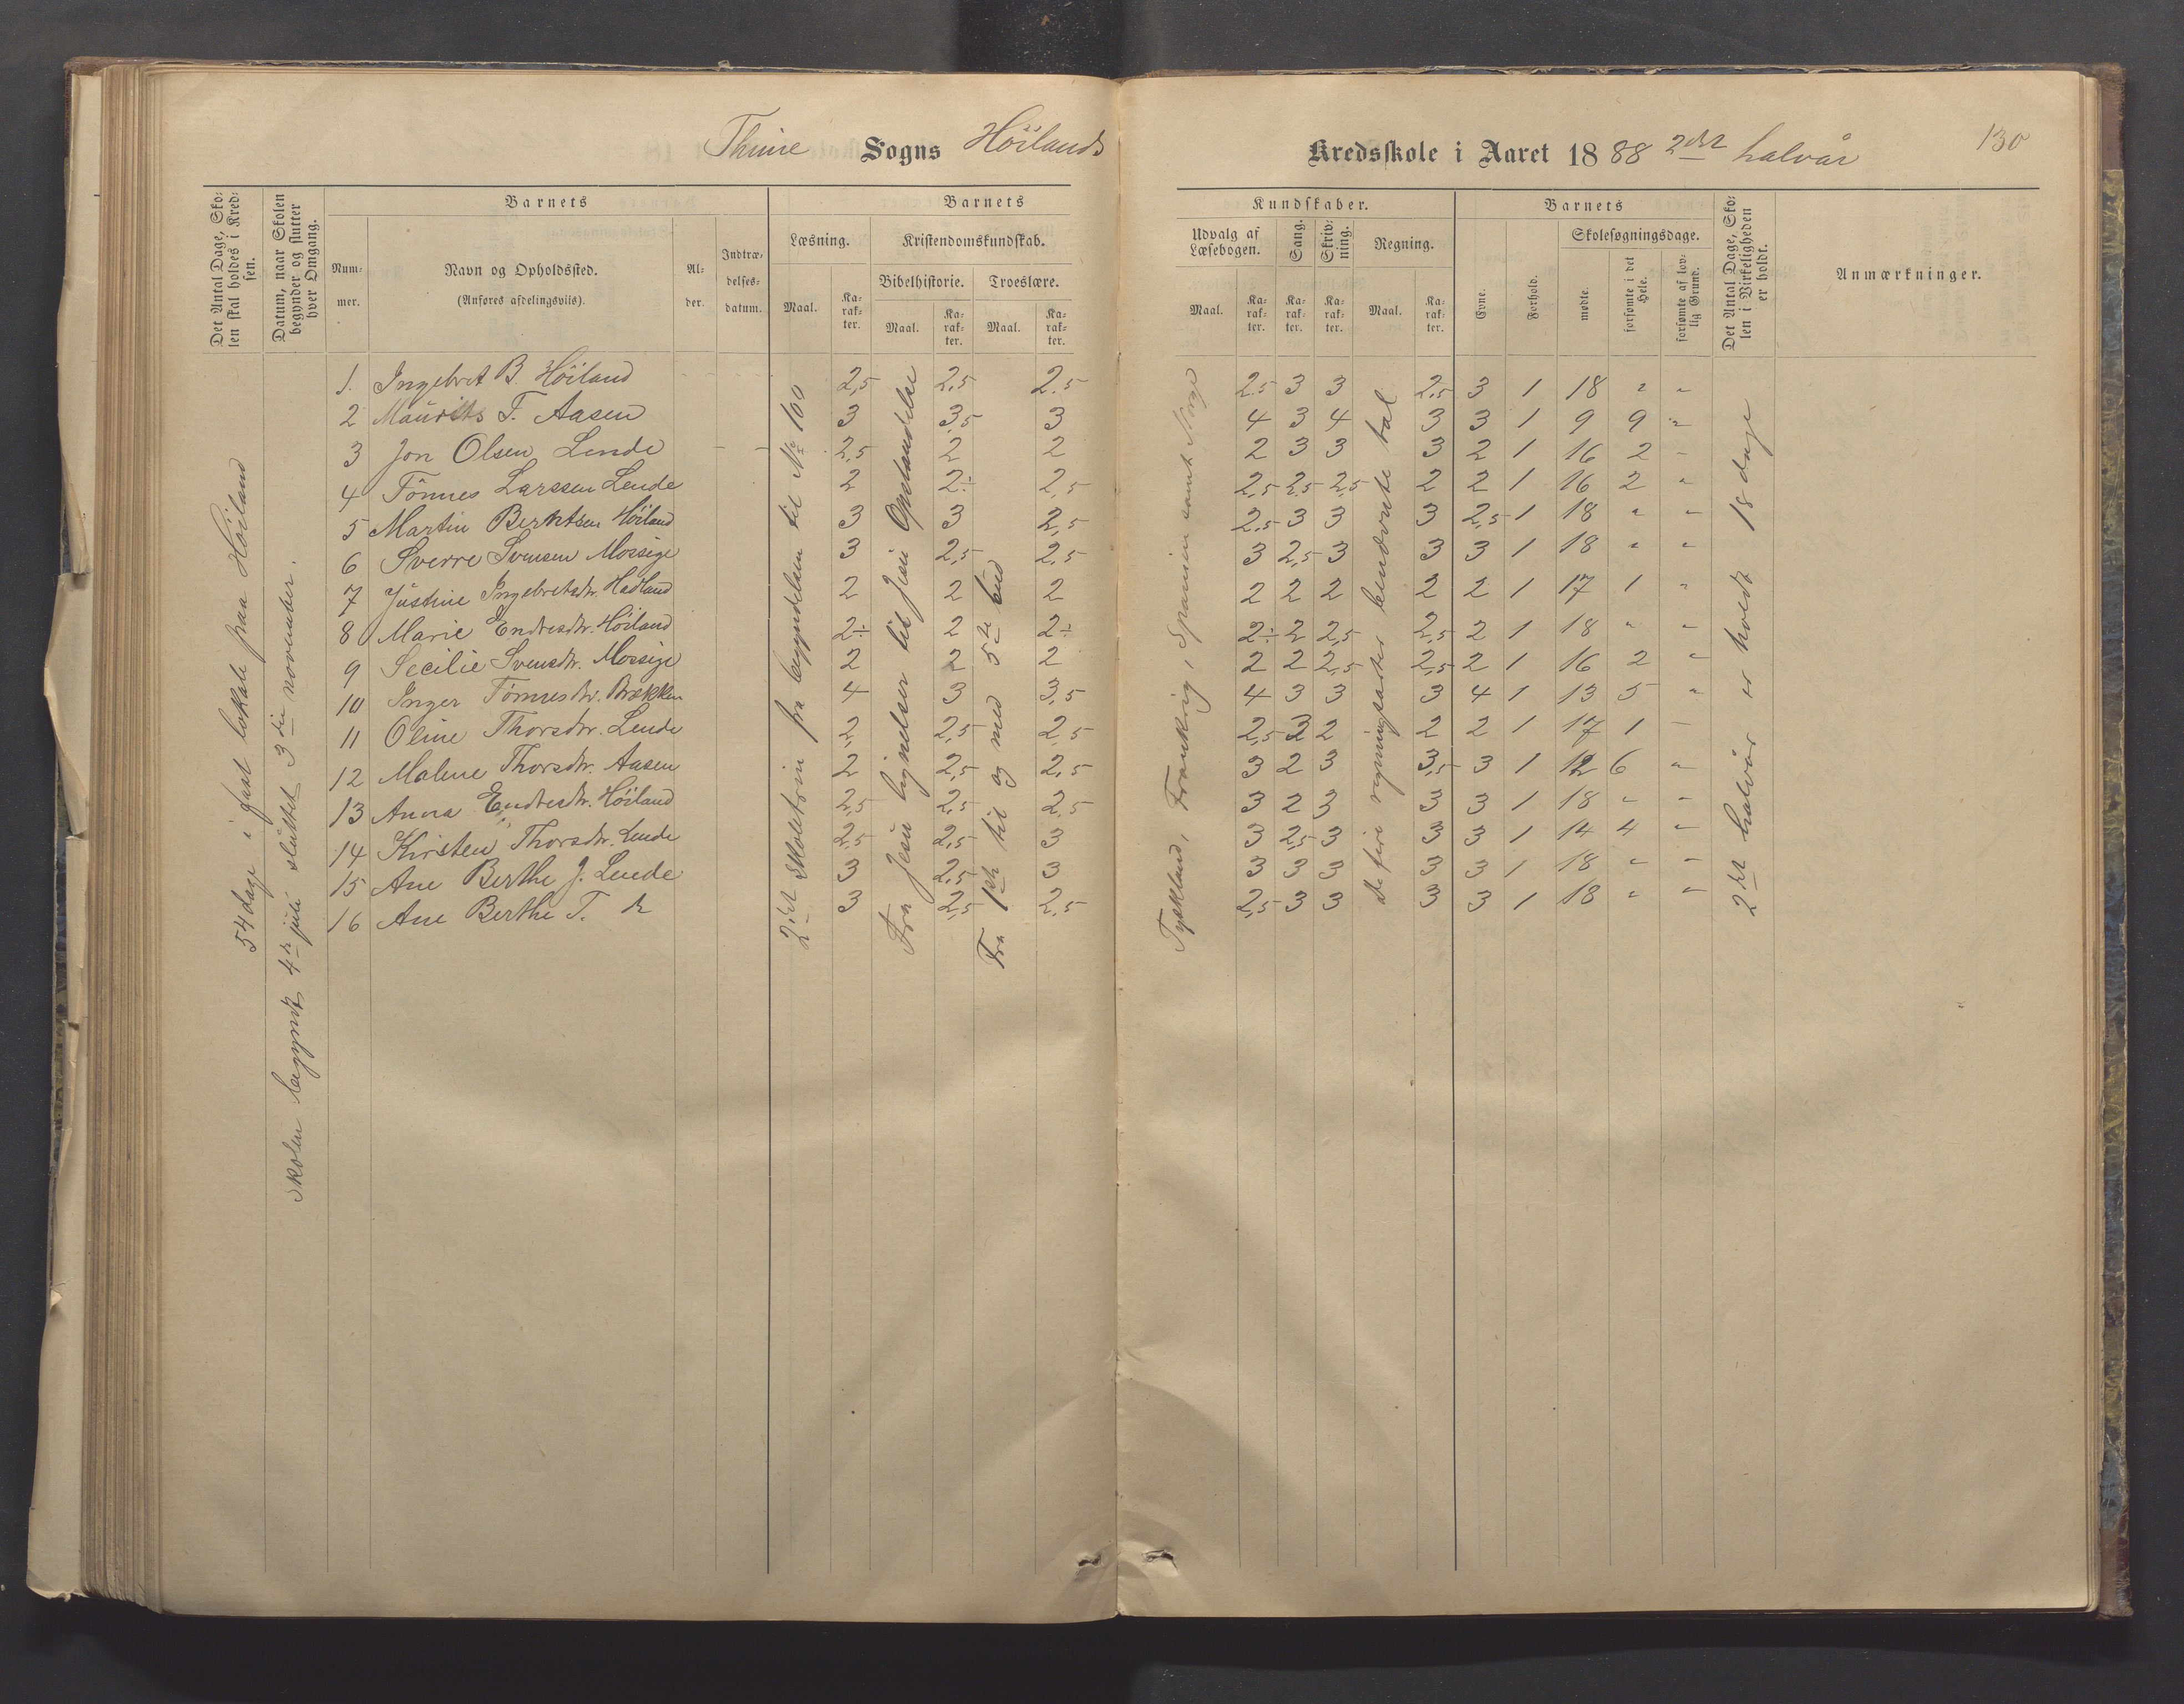 Thime Sogns Höilands Kredsskole i Aaret 1888 2det halvår 130
Det Antal Dage, Sko-
len skal holdes i Kred-
sen.
Datum, naar Skolen
begynder og slutter
hver Omgang.
Barnets
Num-
mer.
Navn og Opholdssted.
(Anføres afdelingsviis).
Al-
der.
Indtræ-
delses-
datum.
Barnets
Læsning.
Maal.
Ka-
rak-
ter.
Kristendomskundskab.
Bibelhistorie.
Maal.
Ka-
rak-
ter.
Troeslære.
Maal.
Ka-
rak-
ter.
Kundskaber.
Udvalg af
Læsebogen.
Maal.
Ka-
rak-
ter.
Sang.
Ka-
rak-
ter.
Skriv-
ning.
Ka-
rak-
ter.
Regning.
Maal.
Ka-
rak-
ter.
Barnets
Evne.
Forhold.
Skolesøgningsdage.
mødte.
forsømte i det
Hele.
forsømte af lov-
lig Grund.
Det Antal Dage, Sko-
len i Virkeligheden
er holdt.
Anmærkninger.
54 dage i fast lokale paa Höiland
Skolen begyndt 4de juli sluttet 3die november.
2det Skoletrin fra begyndelsen til No 100
Fra Jesu lignelser til Jesu Opstandelse
Fra 1ste til og med 5te bud
Tyskland, Frankrig, Spanien samt Norge
De fire regningsarter benævnte tal
2det halvår er holdt 18 dage
1. Ingebret B. Höiland 2,5 2,5 2,5 2,5 3 3 2,5 3 1 18 " "
2 Maurits T. Aasen 3 3,5 3 4 3 4 3 3 1 9 9 "
3 Jon Olsen Lende 2,5 2 2 2 3 3 3 2 1 16 2 "
4 Tönnes Larssen Lende 2 2÷ 2,5 2,5 2,5 2,5 2 2 1 16 2 "
5 Martin Berntsen Höiland 3 3 2,5 2,5 3 3 3 2,5 1 18 " "
6 Sverre Svensen Mossige 3 2,5 2,5 3 2,5 3 3 3 1 18 " "
7 Justine Ingebretsdtr. Hadland 2 2 2 2 2 2 2 2 1 17 1 "
8 Marie Endresdtr. Höiland 2÷ 2 2÷ 2÷ 2 2,5 2,5 2 1 18 " "
9 Secilie Svensdtr. Mossige 2 2 2 2 2 2,5 2,5 2 1 16 2 "
10 Inger Tönnesdtr. Brekken 4 3 3,5 4 3 3 3 4 1 13 5 "
11 Oline Thorsdtr. Lende 2 2,5 2,5 2,5 3 2 2 2 1 17 1 "
12 Malene Thorsdtr. Aasen 2 2,5 2,5 3 2 3 3,5 3 1 12 6 "
13 Anna Endresdtr. Höiland 2,5 2,5 2,5 3 2 3 3 3 1 18 " "
14 Kirsten Thorsdtr. Lende 2,5 2,5 3 3 2,5 3 3 3 1 14 4 "
15 Ane Berthe J. Lende 3 2,5 3 3 3 3 3 3 1 18 " "
16 Ane Berthe T. do 3 2,5 2,5 2,5 3 3 3 3 1 18 " "